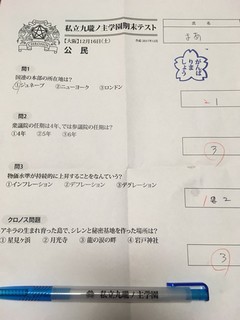 私立九竜ノ主学園期末テスト
【大阪】12月16日(土)
公民
氏名
まあ
がんばりましょう
問1
国連の本部の所在地は?
①ジュネーブ ②ニューヨーク ③ロンドン
1
問2
衆議院の任期は4年、では参議院の任期は?
①4年 ②5年 ③6年
③
問3
物価水準が持続的に上昇することをなんていう?
①インフレーション ②デフレーション ③デグレーション
2
クロノス問題
アキラの生まれ育った島で、シレンと秘密基地を作った場所は?
①星見ヶ浜 ②月光寺 ③龍の涙の畔 ④岩戸神社
③
私立九竜ノ主学園